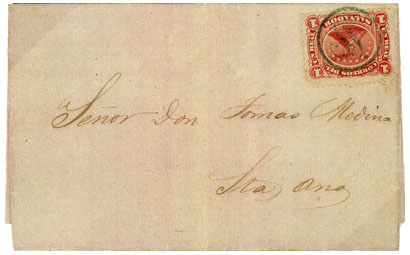 Señor Don Tomas Medina
Sta Ana
1 UN REAL 1
CORREOS DEL
SALVADOR
1 1